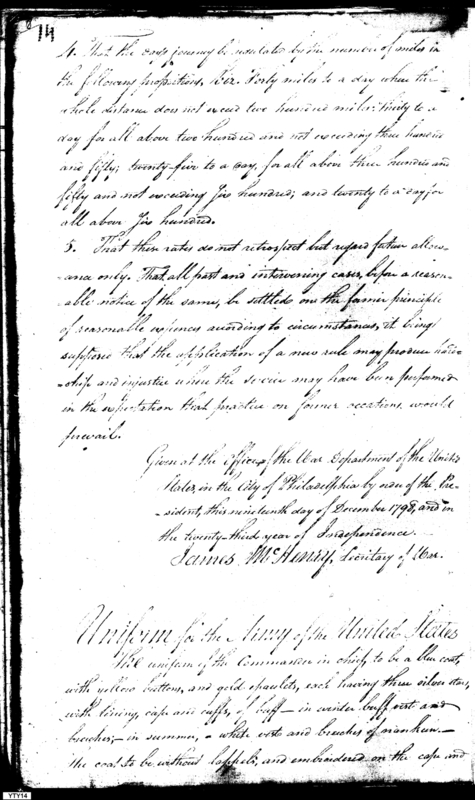 14
4. That the days journey be regulated by the number of miles in
the following proportions, Viz. Forty miles to a day when the
whole distance does not exceed two hundred miles: thirty to a
day for all above two hundred and not exceeding three hundred
and fifty; twenty-five to a day, for all above three hundred and
fifty and not exceeding Six hundred; and twenty to a day, for
all above Six hundred.
5. That these rates do not retrospect but regard future allow-
ance only. That all past and intervening cases, before a reason-
able notice of the same, be settled on the former principle
of reasonable expences according to circumstances, it being
supposed that the application of a new rule may produce hard-
-ship and injustice where the service may have been performed
in the expectation that practice on former occasions would
prevail.
Given at the Office of the War Department of the United
States, in the City of Philadelphia by order of the Pre-
-sident, this nineteenth day of December 1798, and in
the twenty-third year of Independence.
James McHenry, Secretary of War.
Uniform for the Army of the United States
The uniform of the Commander in chief, to be a blue coat,
with yellow buttons, and gold epaulets, each having three silver stars,
with lining, cape and cuffs, of buff - in winter buff vest and
breeches; - in summer, a white vest and breeches of nankeen. -
the coat to be without lappels, and embroidered on the cape and
YTY14